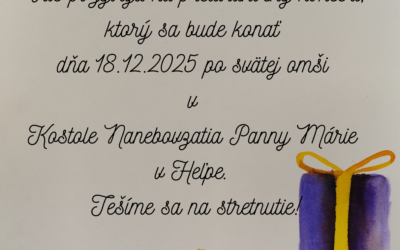 ktorý sa bude konať
dňa 18.12.2025 po svätej omši
v
Kostole Nanebovzatia Panny Márie
v Heľpe.
Tešíme sa na stretnutie!